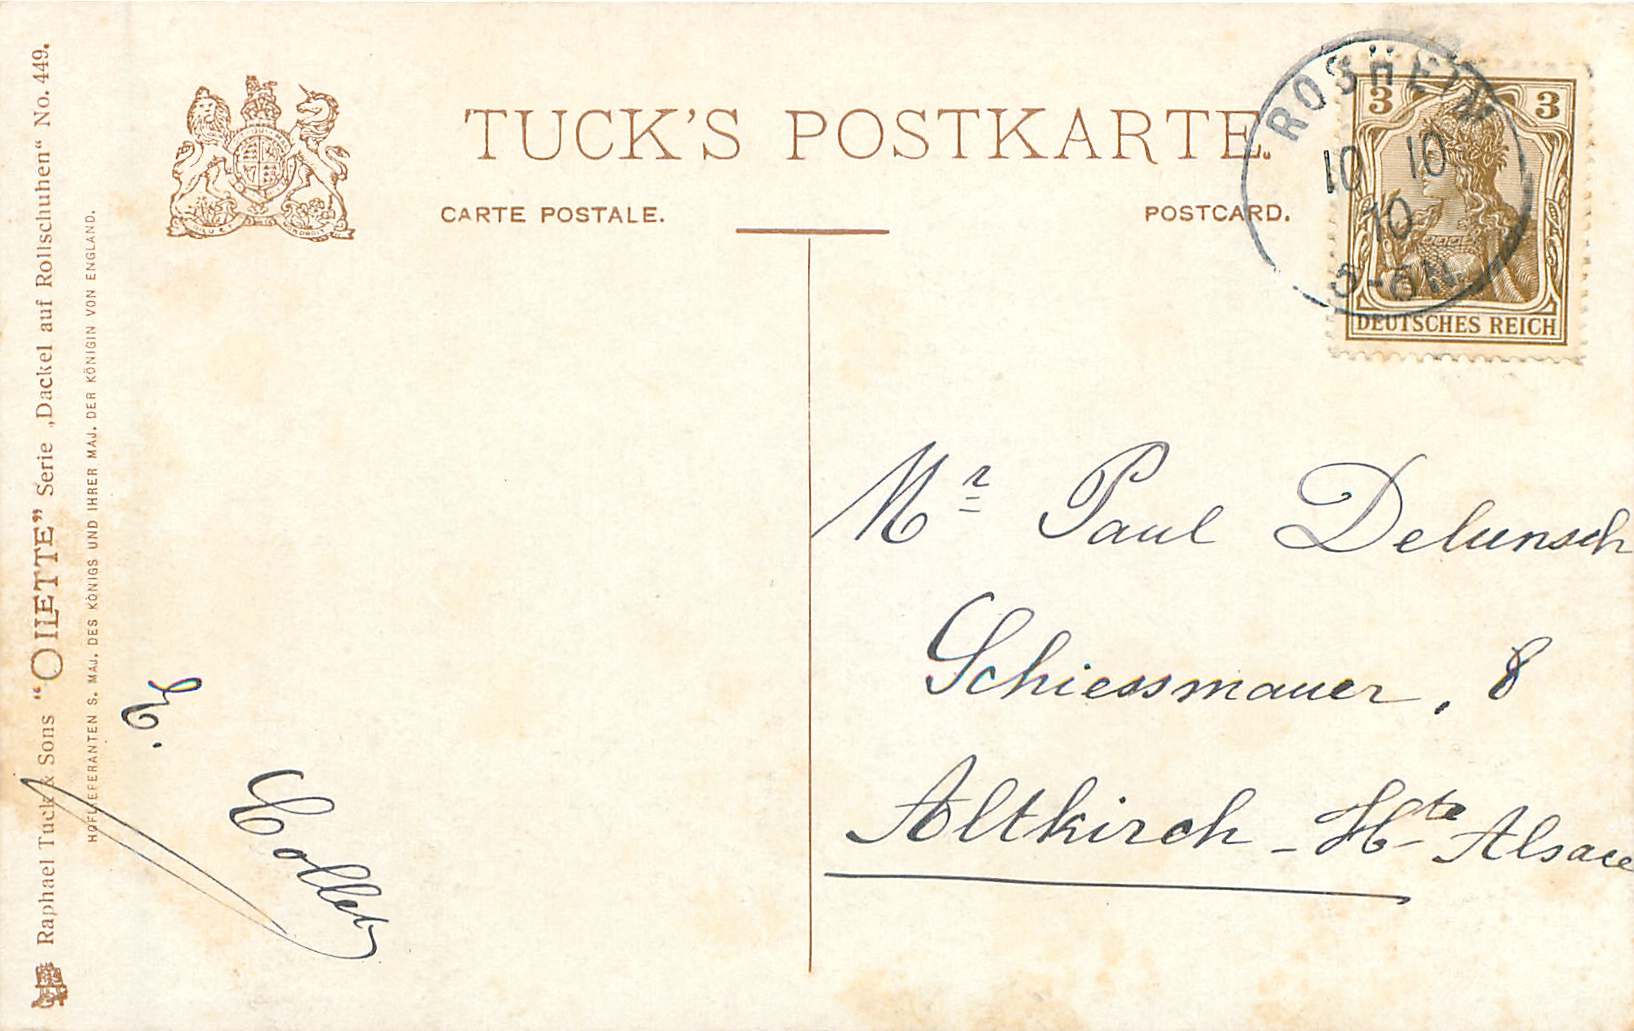 TUCK'S POSTKARTE.
CARTE POSTALE.
POSTCARD.
Raphael Tuck & Sons “OILETTE” Serie „Dackel auf Rollschuhen“ No. 449.
HOFLIEFERANTEN S. MAJ. DES KÖNIGS UND IHRER MAJ. DER KÖNIGIN VON ENGLAND.
ROSHEIM
10 10
10
5-6N
3 3
DEUTSCHES REICH
Mr Paul Delunsch
Schiessmauer, 8
Altkirch - Hte Alsace
Collet